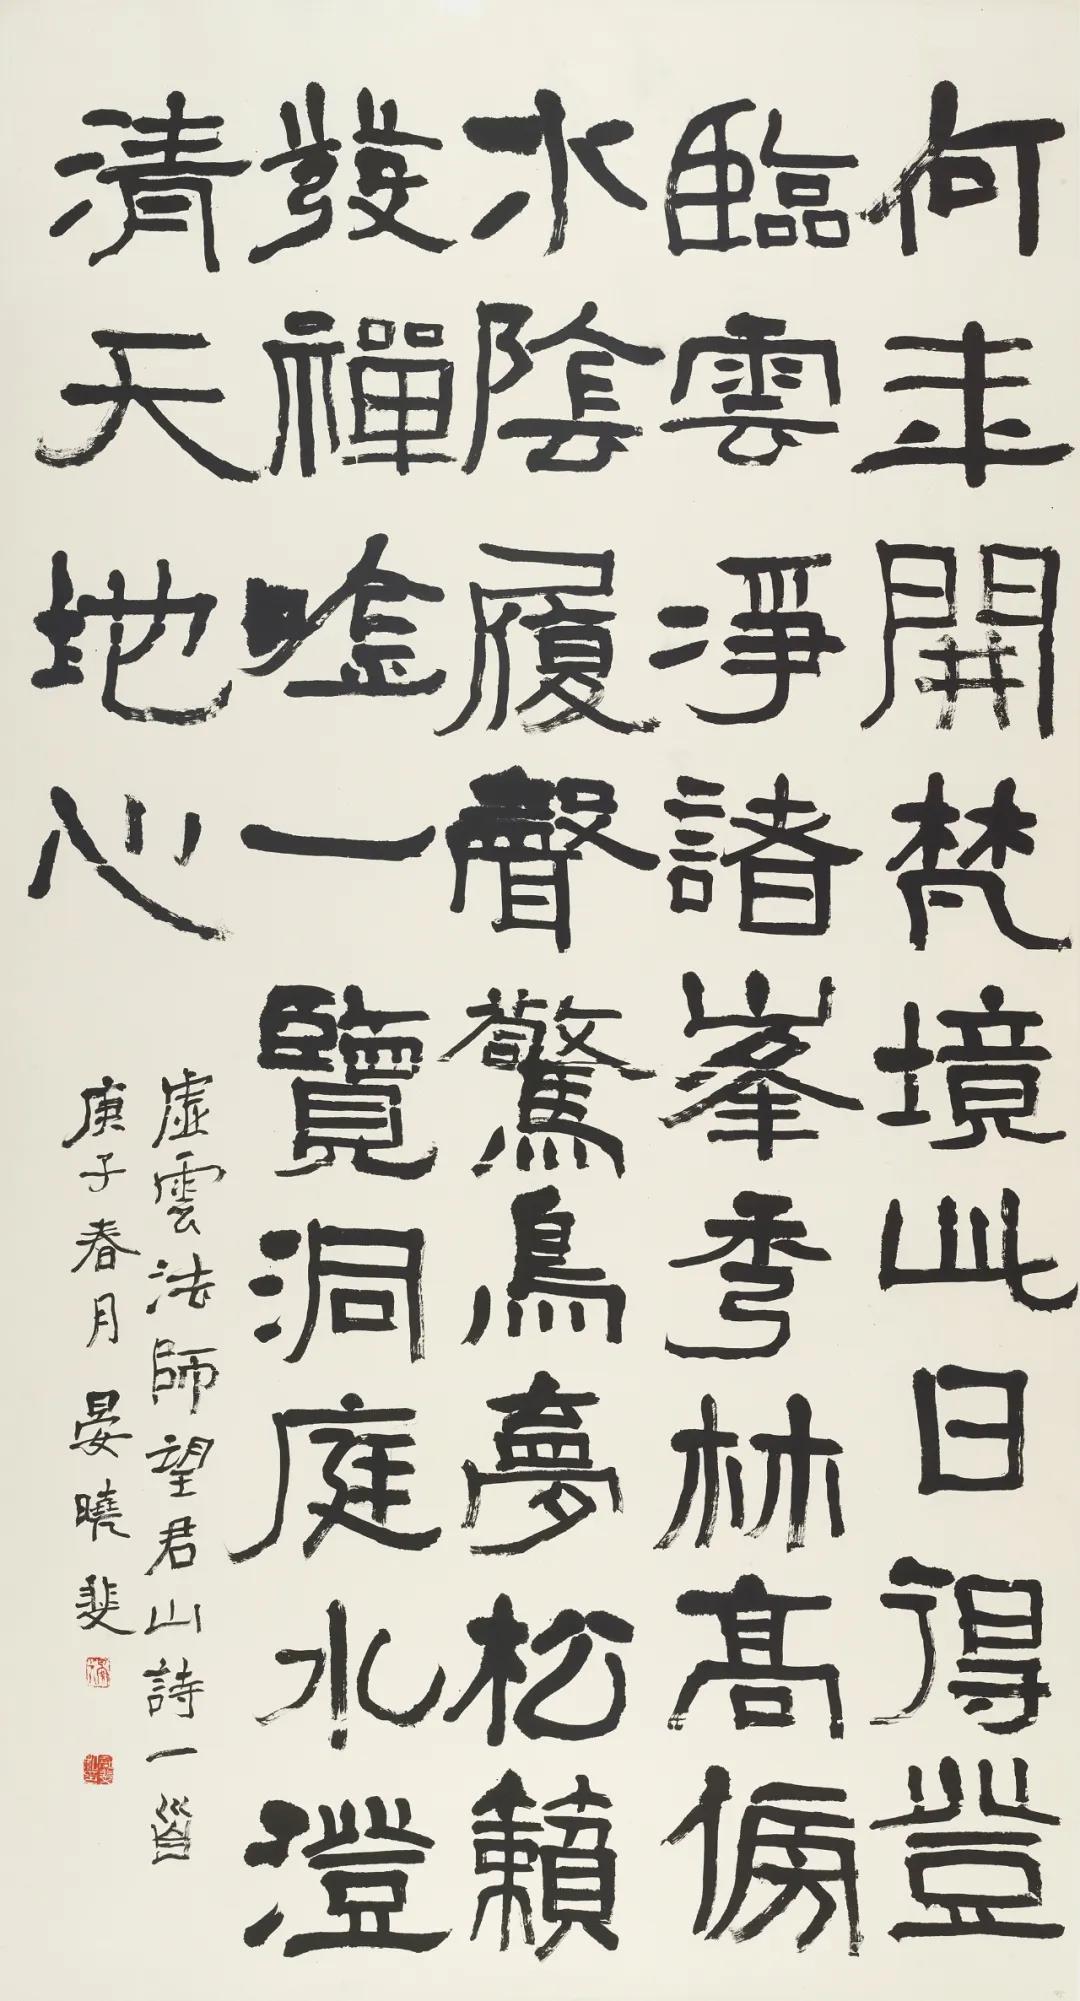 何年開梵境此日得登
臨雲淨諸峯秀林高傍
水陰履聲驚鳥夢松籟
發禪唫一覽洞庭水澄
清天地心
虛雲法師望君山詩一首
庚子春月晏曉斐